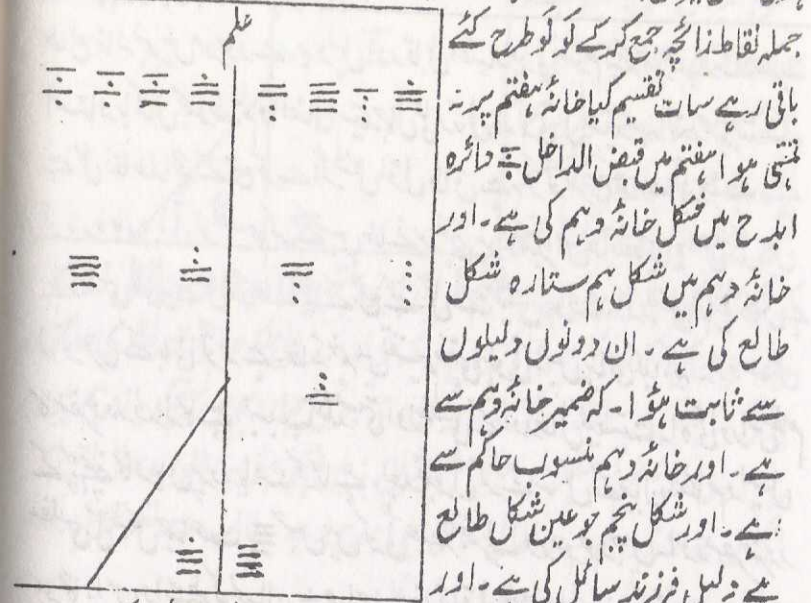 علم
جملہ نقاط زائچہ جمع کر کے نو نو طرح کئے
باقی رہے سات تقسیم کیا خانۂ ہفتم پر نہ
منتہی ہوا ہفتم میں قبض الداخل دائرہ
ابدح میں شکل خانۂ دہم کی ہے۔ اور
خانۂ دہم میں شکل ہم ستارہ شکل
طالع کی ہے۔ ان دونوں دلیلوں
سے ثابت ہؤا۔ کہ ضمیر خانۂ دہم سے
ہے۔ اور خانۂ دہم منسوب حاکم سے
ہے۔ اور شکل پنجم جو عین شکل طالع
ہے دلیل فرزند سائل کی ہے۔ اور